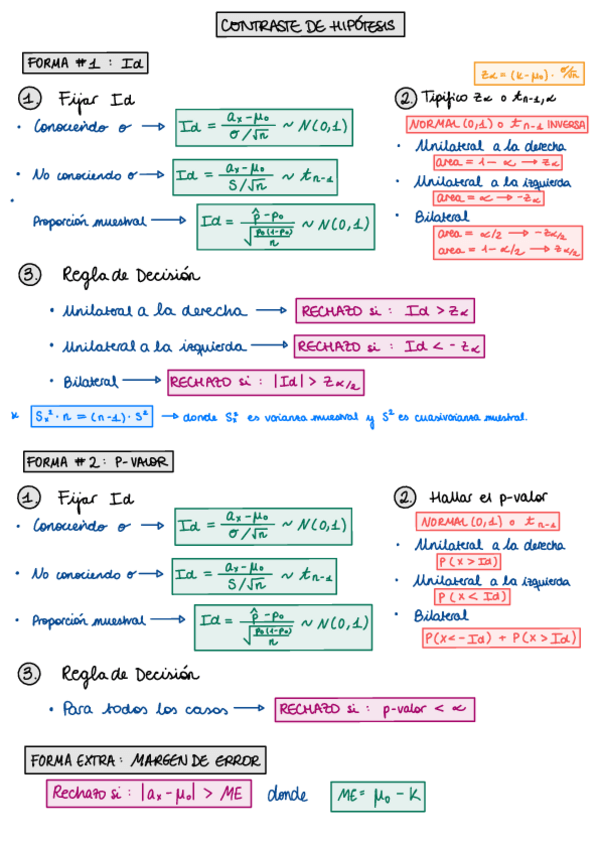 CONTRASTE DE HIPÓTESIS
FORMA #1 : Id
1. Fijar Id
• Conociendo σ → Id = (aₓ-μ₀)/(σ/√n) ~ N(0,1)
• No conociendo σ → Id = (aₓ-μ₀)/(S/√n) ~ tₙ₋₁
•
Proporción muestral → Id = (p̂-p₀)/√(p₀(1-p₀)/n) ~ N(0,1)
Zα = (K-μ₀) · σ/√n
2. Tipifico Zα o tₙ₋₁,α
NORMAL (0,1) o tₙ₋₁ INVERSA
• Unilateral a la derecha
area = 1-α → Zα
• Unilateral a la izquierda
area = α → -Zα
• Bilateral
area = α/2 → -Zα/₂
area = 1-α/2 → Zα/₂
3. Regla de Decisión
• Unilateral a la derecha → RECHAZO si : Id > Zα
• Unilateral a la izquierda → RECHAZO si : Id < -Zα
• Bilateral → RECHAZO si : |Id| > Zα/₂
* Sₓ² · n = (n-1) · S² → donde Sₓ² es varianza muestral y S² es cuasivarianza muestral.
FORMA #2 : P-VALOR
1. Fijar Id
• Conociendo σ → Id = (aₓ-μ₀)/(σ/√n) ~ N(0,1)
• No conociendo σ → Id = (aₓ-μ₀)/(S/√n) ~ tₙ₋₁
• Proporción muestral → Id = (p̂-p₀)/√(p₀(1-p₀)/n) ~ N(0,1)
2. Hallar el p-valor
NORMAL (0,1) o tₙ₋₁
• Unilateral a la derecha
P(X > Id)
• Unilateral a la izquierda
P(X < Id)
• Bilateral
P(X < -Id) + P(X > Id)
3. Regla de Decisión
• Para todos los casos → RECHAZO si : p-valor < α
FORMA EXTRA : MARGEN DE ERROR
Rechazo si : |aₓ-μ₀| > ME donde ME = μ₀ - K